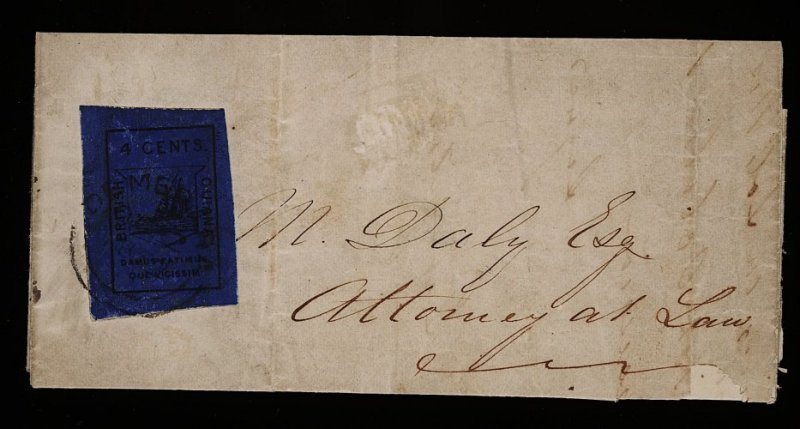 4 CENTS.
BRITISH
GUIANA.
DAMUS PATIMUS
QUE VICISSIM.
DEME
M. Daly Esq.
Attorney at Law